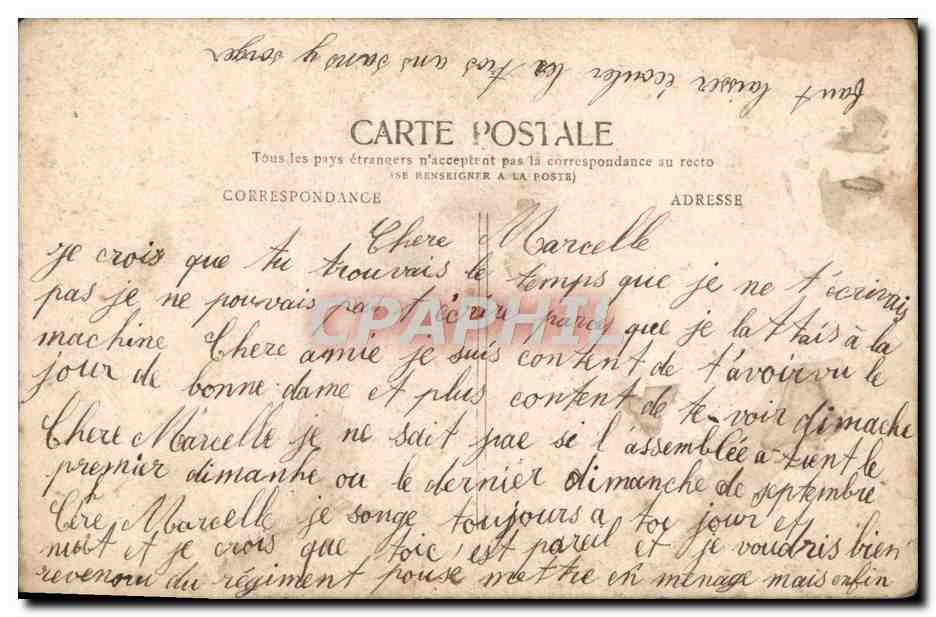 faut laisser écouler les trois ans sans y songer
CARTE POSTALE
Tous les pays étrangers n'acceptent pas la correspondance au recto
(SE RENSEIGNER A LA POSTE)
CORRESPONDANCE
ADRESSE
Chere Marcelle
je crois que tu trouvais le temps que je ne t'écrivais
pas je ne pouvais pas t'écrire parce que je battais à la
machine Chere amie je suis content de t'avoir vu le
jour de bonne dame et plus content de te voir dimache
Chere Marcelle je ne sait pae si l'assemblée a tient le
premier dimanhe ou le dernier dimanche de septembre
Cère Marcelle je songe toujours a toi jour et
nuit et je crois que toi c'est pareil et je voudris bien
revenou du régiment pouse mettre en ménage mais enfin
CPAPHIL